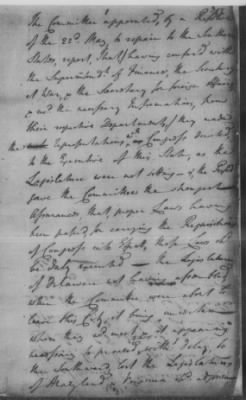 The Committee appointed, by a Resol
of the 22d. May to repair to the Southern
States, report, that having confer'd with
the Superintendt. of Finance, the Secretary
at War, & the Secretary for foreign Affairs
& recd. the necessary Information, from
their respective Departments, they made
the Representations, wch. Congress directed
to the Executive of this State, as the
Legislature were not sitting, & the Presidt.
gave the Committee the strongest
Assurances, that, proper Laws having
been passed, for carrying the Requisitions
of Congress into Effect, those Laws shd.
be duly executed — the Legislature
of Delaware not having assembled
when the Committee were about to
leave this City, it being uncertain
when they wd. meet, & it appearing
necessary to proceed without delay, to
the Southward, lest the Legislatures
of Maryland & Virginia shd. adjourn